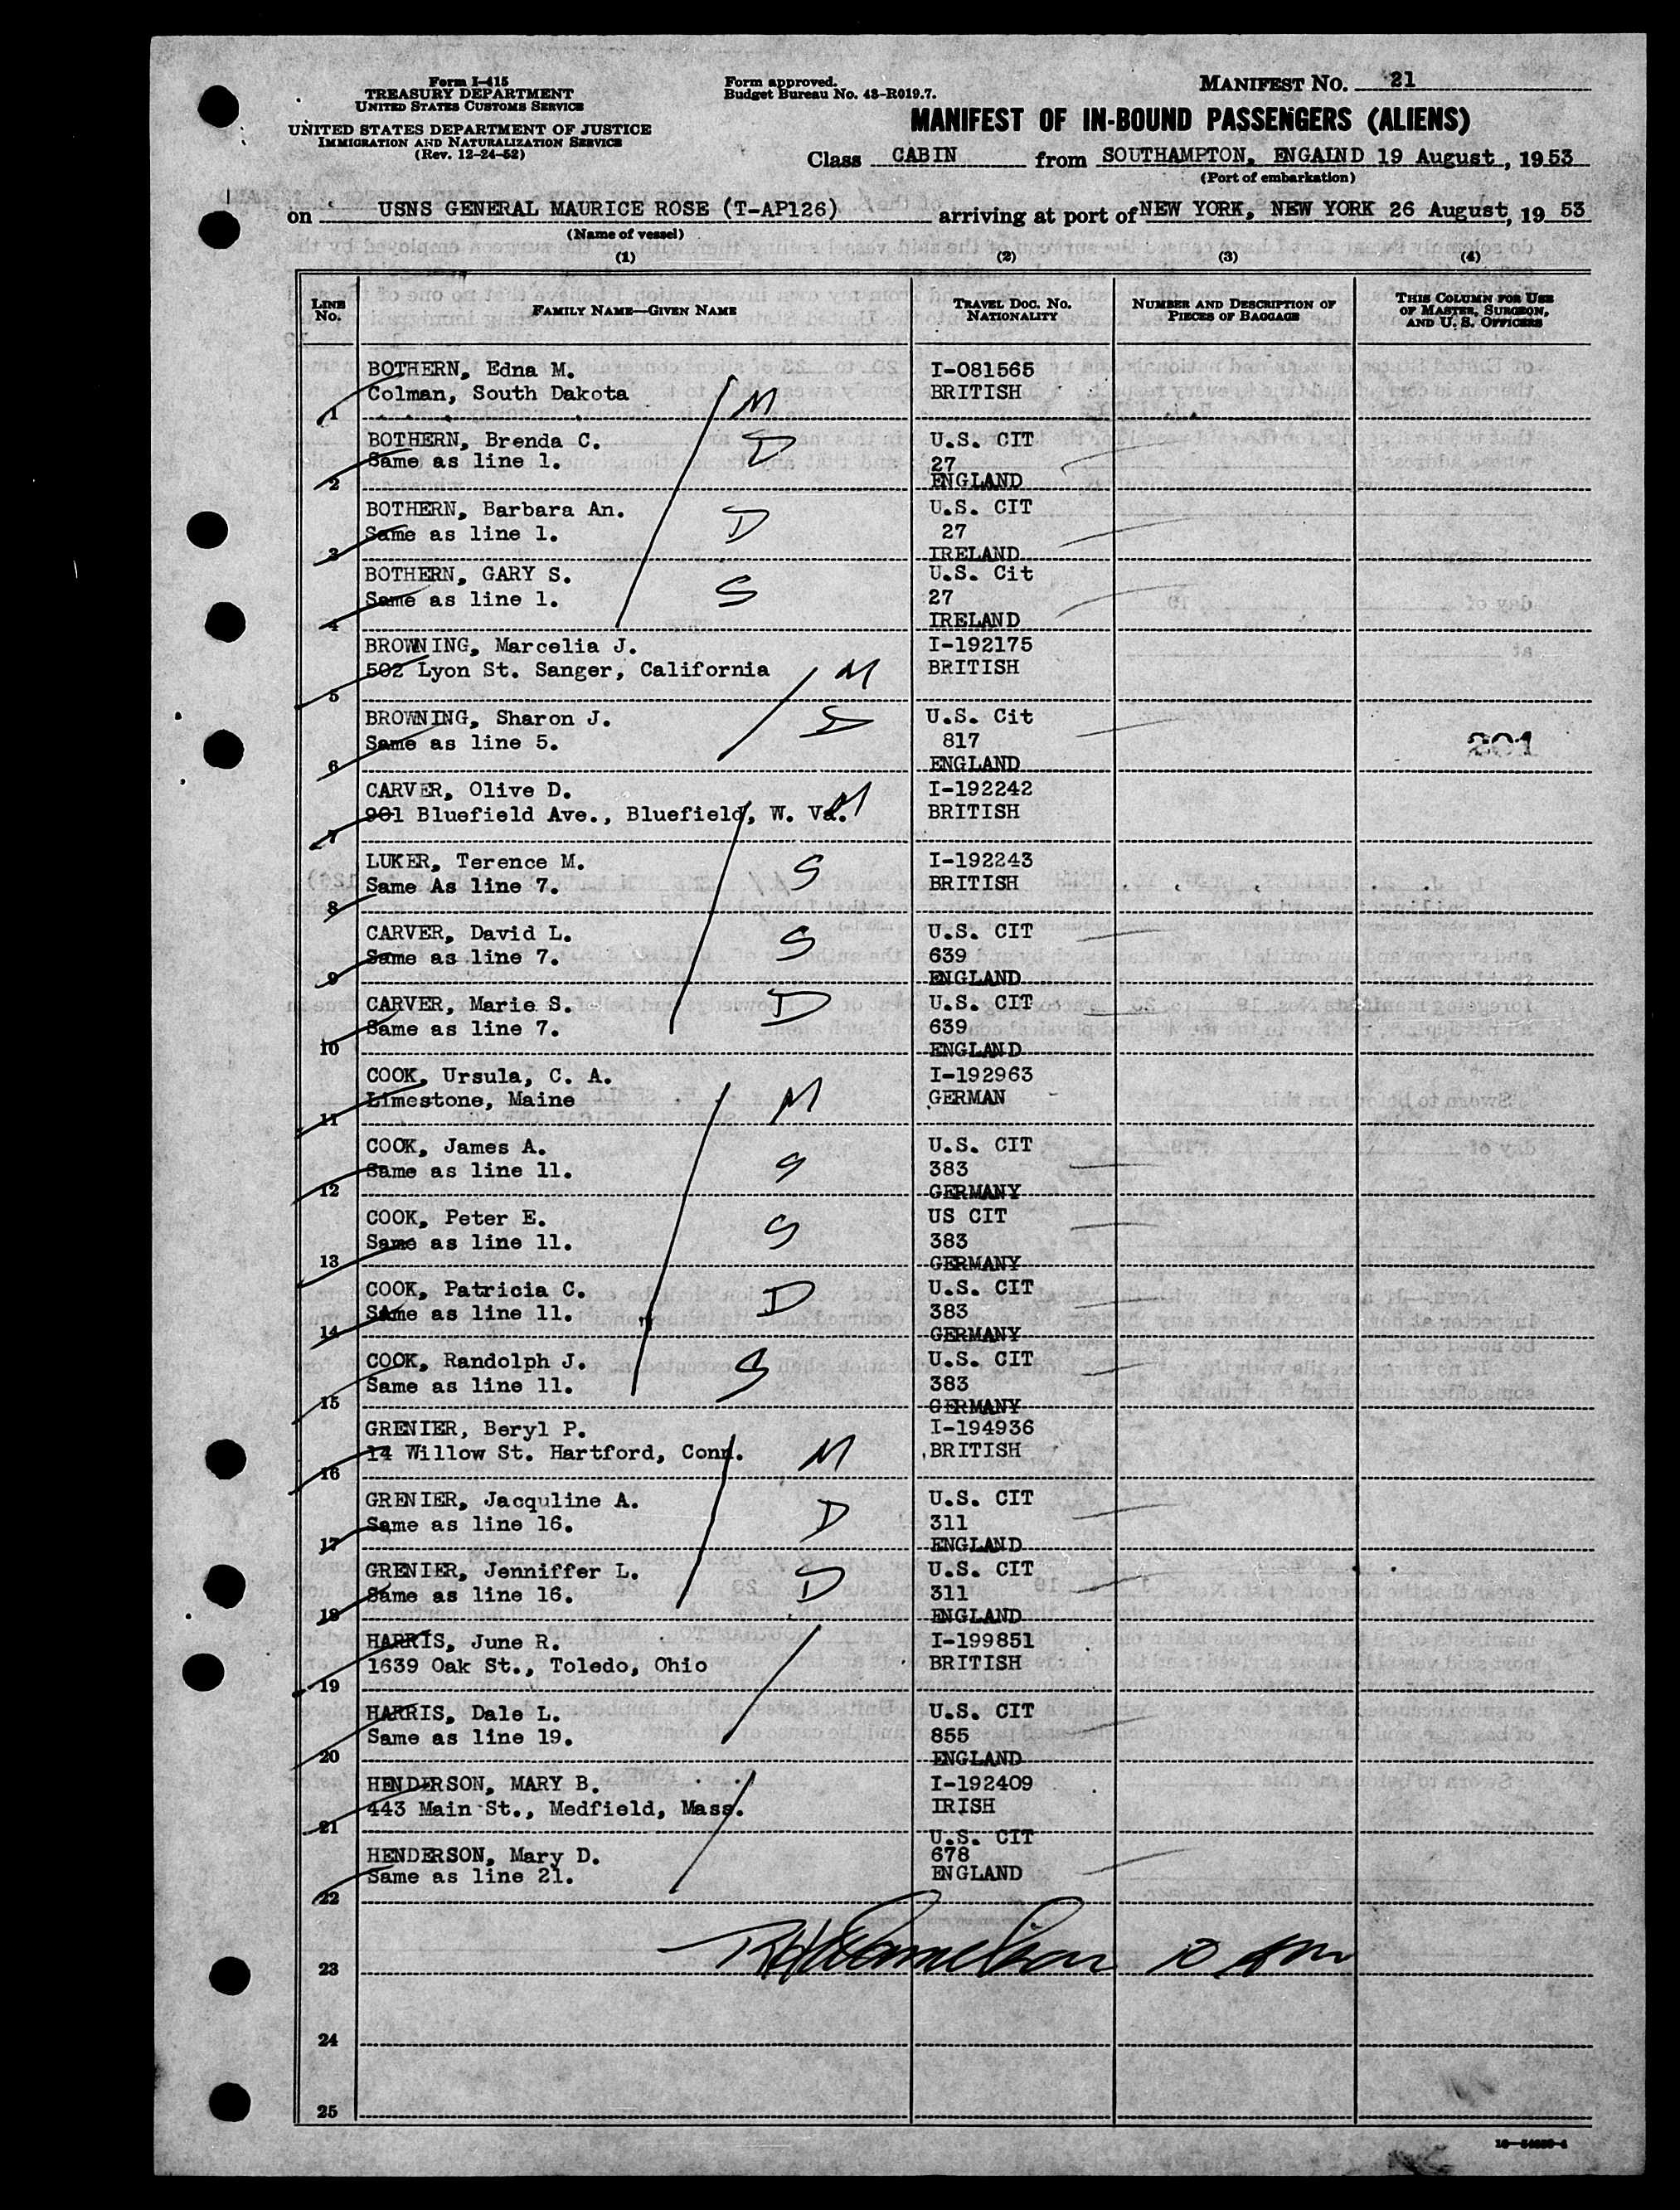 Form I-415
TREASURY DEPARTMENT
UNITED STATES CUSTOMS SERVICE
UNITED STATES DEPARTMENT OF JUSTICE
IMMIGRATION AND NATURALIZATION SERVICE
(Rev. 12-24-52)
Form approved.
Budget Bureau No. 43-R019.7.
MANIFEST NO. 21
MANIFEST OF IN-BOUND PASSENGERS (ALIENS)
Class CABIN from SOUTHAMPTON, ENGAIND 19 August, 1953
(Port of embarkation)
on USNS GENERAL MAURICE ROSE (T-AP126) arriving at port of NEW YORK, NEW YORK 26 August, 1953
(Name of vessel)
(1) (2) (3) (4)
LINE NO.
FAMILY NAME—GIVEN NAME
TRAVEL DOC. NO. NATIONALITY
NUMBER AND DESCRIPTION OF PIECES OF BAGGAGE
THIS COLUMN FOR USE OF MASTER, SURGEON, AND U. S. OFFICERS
BOTHERN, Edna M. I-081565
Colman, South Dakota M BRITISH
1
BOTHERN, Brenda C. D U.S. CIT
Same as line 1. 27
2 ENGLAND
BOTHERN, Barbara An. D U.S. CIT
Same as line 1. 27
3 IRELAND
BOTHERN, GARY S. S U.S. Cit
Same as line 1. 27
4 IRELAND
BROWNING, Marcelia J. I-192175
502 Lyon St. Sanger, California M BRITISH
5
BROWNING, Sharon J. D U.S. Cit
Same as line 5. 817 201
6 ENGLAND
CARVER, Olive D. M I-192242
901 Bluefield Ave., Bluefield, W. Va. BRITISH
7
LUKER, Terence M. S I-192243
Same As line 7. BRITISH
8
CARVER, David L. S U.S. CIT
Same as line 7. 639
9 ENGLAND
CARVER, Marie S. D U.S. CIT
Same as line 7. 639
10 ENGLAND
COOK, Ursula, C. A. I-192963
Limestone, Maine M GERMAN
11
COOK, James A. S U.S. CIT
Same as line 11. 383
12 GERMANY
COOK, Peter E. S US CIT
Same as line 11. 383
13 GERMANY
COOK, Patricia C. D U.S. CIT
Same as line 11. 383
14 GERMANY
COOK, Randolph J. S U.S. CIT
Same as line 11. 383
15 GERMANY
GRENIER, Beryl P. I-194936
14 Willow St. Hartford, Conn. M BRITISH
16
GRENIER, Jacquline A. D U.S. CIT
Same as line 16. 311
17 ENGLAND
GRENIER, Jenniffer L. D U.S. CIT
Same as line 16. 311
18 ENGLAND
HARRIS, June R. I-199851
1639 Oak St., Toledo, Ohio BRITISH
19
HARRIS, Dale L. U.S. CIT
Same as line 19. 855
20 ENGLAND
HENDERSON, MARY B. I-192409
443 Main St., Medfield, Mass. IRISH
21
U.S. CIT
HENDERSON, Mary D. 678
Same as line 21. ENGLAND
22
23
24
25